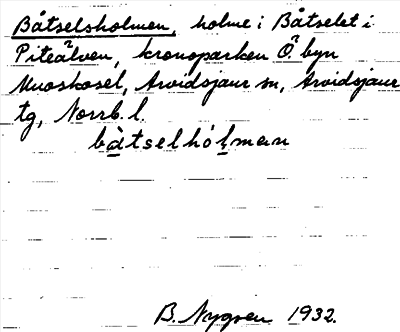 Båtselsholmen, holme i Båtselet i
Piteälven, kronoparken Ö. byn
Muoskosel, Arvidsjaur sn, Arvidsjaur
tg, Norrb. l.
bàtselhólman
B. Nygren 1932.